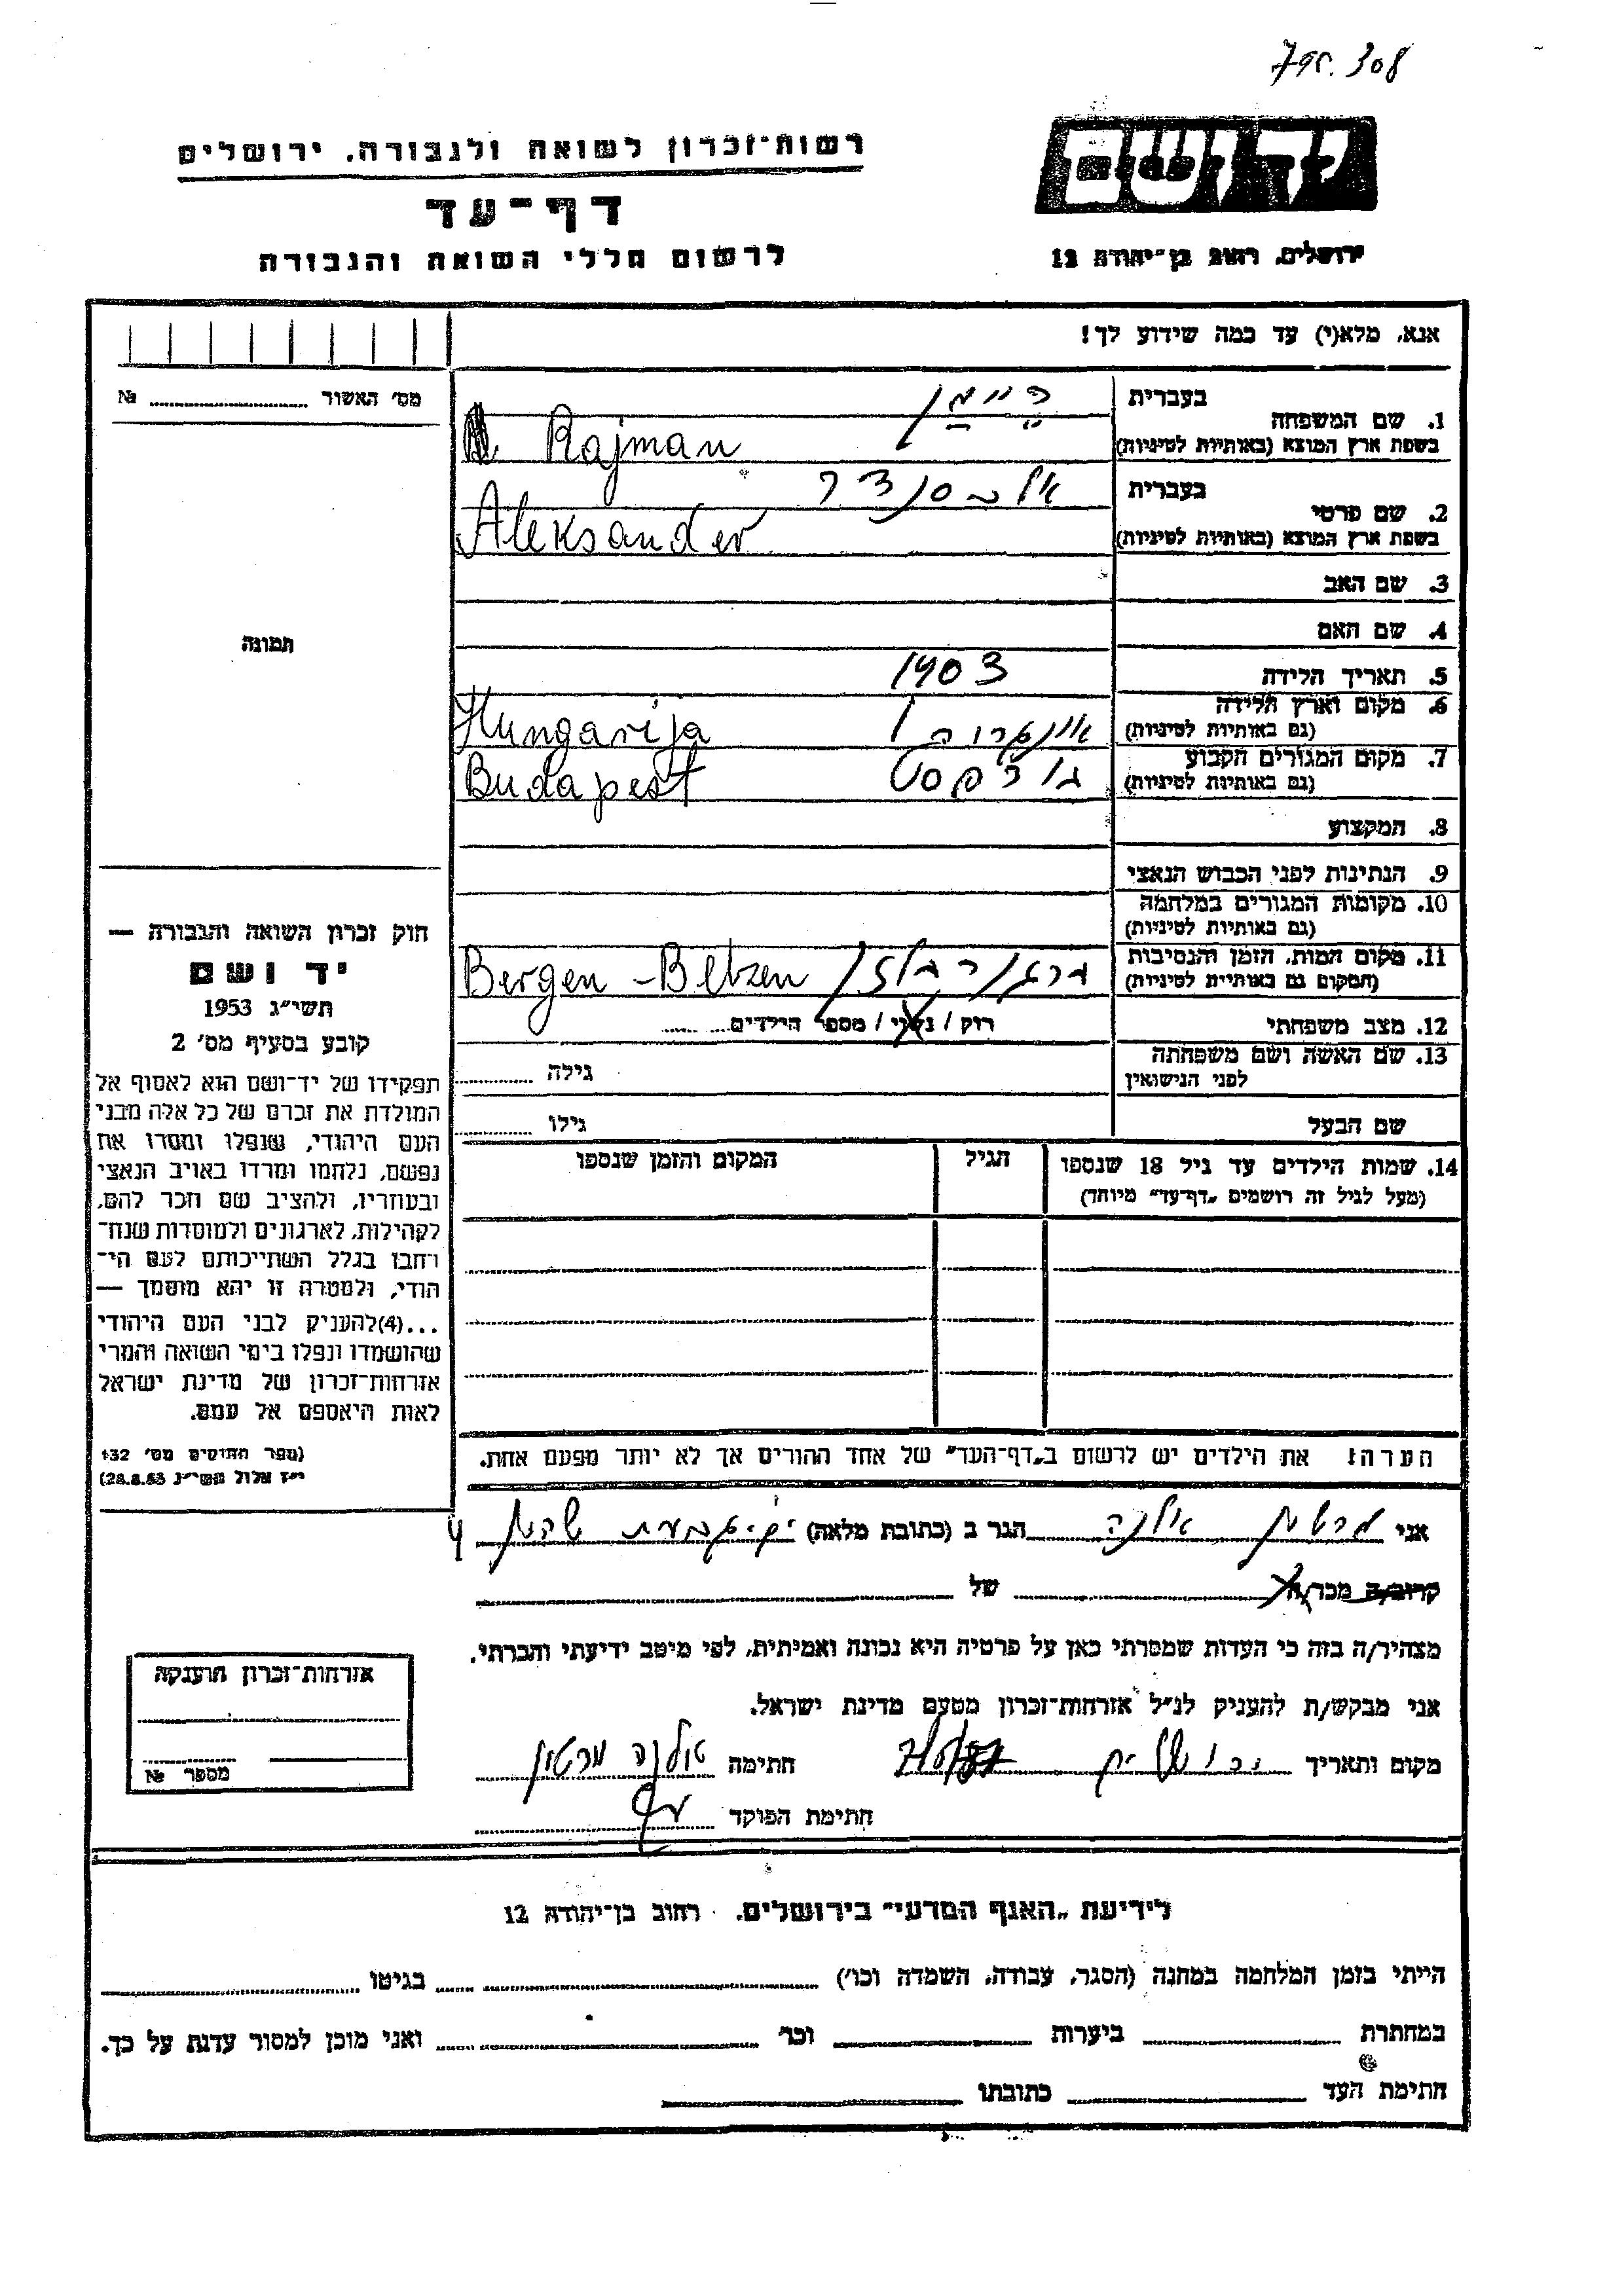 308
רשות־זכרון לשואה ולגבורה, ירושלים
יד ושם
דף־עד
לרשום חללי השואה והגבורה
ירושלים, רחוב בן־יהודה 12
אנא, מלא(י) עד כמה שידוע לך!
מס׳ האשור № 
בעברית
1. שם המשפחה
ריימן
בשפת ארץ המוצא (באותיות לטיניות)
Rajman
בעברית
2. שם פרטי
אלכסנדר
בשפת ארץ המוצא (באותיות לטיניות)
Aleksander
3. שם האב
4. שם האם
תמונה
5. תאריך הלידה 1903
6. מקום וארץ הלידה
(גם באותיות לטיניות)
Hungarija
7. מקום המגורים הקבוע
(גם באותיות לטיניות)
בודפסט Budapest
8. המקצוע
9. הנתינות לפני הכבוש הנאצי
10. מקומות המגורים במלחמה
(גם באותיות לטיניות)
11. מקום המות, הזמן והנסיבות
(המקום גם באותיות לטיניות)
Bergen-Beltzen
12. מצב משפחתי רוק / נשוי / מספר הילדים
13. שם האשה ושם משפחתה
לפני הנישואין
גילה
שם הבעל גילו
14. שמות הילדים עד גיל 18 שנספו הגיל המקום והזמן שנספו
(מעל לגיל זה רושמים „דף־עד״ מיוחד)
הערה: את הילדים יש לרשום ב„דף־העד״ של אחד ההורים אך לא יותר מפעם אחת.
חוק זכרון השואה והגבורה —
יד ושם
תשי״ג 1953
קובע בסעיף מס׳ 2
תפקידו של יד־ושם הוא לאסוף אל
המולדת את זכרם של כל אלה מבני
העם היהודי, שנפלו ומסרו את
נפשם, נלחמו ומרדו באויב הנאצי
ובעוזריו, ולהציב שם וזכר להם,
לקהילות, לארגונים ולמוסדות שנח־
רבו בגלל השתייכותם לעם הי־
הודי, ולמטרה זו יהא מוסמך —
...(4)להעניק לבני העם היהודי
שהושמדו ונפלו בימי השואה והמרי
אזרחות־זכרון של מדינת ישראל
לאות היאספם אל עמם.
(ספר החוקים מס׳ 132
י״ז אלול תשי״ג 28.8.53)
אני מרטון אילנה הגר ב (כתובת מלאה)
קרוב/ה מכר/ה של
מצהיר/ה בזה כי העדות שמסרתי כאן על פרטיה היא נכונה ואמיתית, לפי מיטב ידיעתי והכרתי.
אני מבקש/ת להעניק לנ״ל אזרחות־זכרון מטעם מדינת ישראל.
מקום ותאריך ירושלים חתימה אילנה מרטון
חתימת הפוקד
אזרחות־זכרון הוענקה
מספר №
לידיעת „האגף המדעי״ בירושלים, רחוב בן־יהודה 12
הייתי בזמן המלחמה במחנה (הסגר, עבודה, השמדה וכו׳) בגיטו
במחתרת ביערות וכו׳ ואני מוכן למסור עדות על כך.
חתימת העד כתובתו